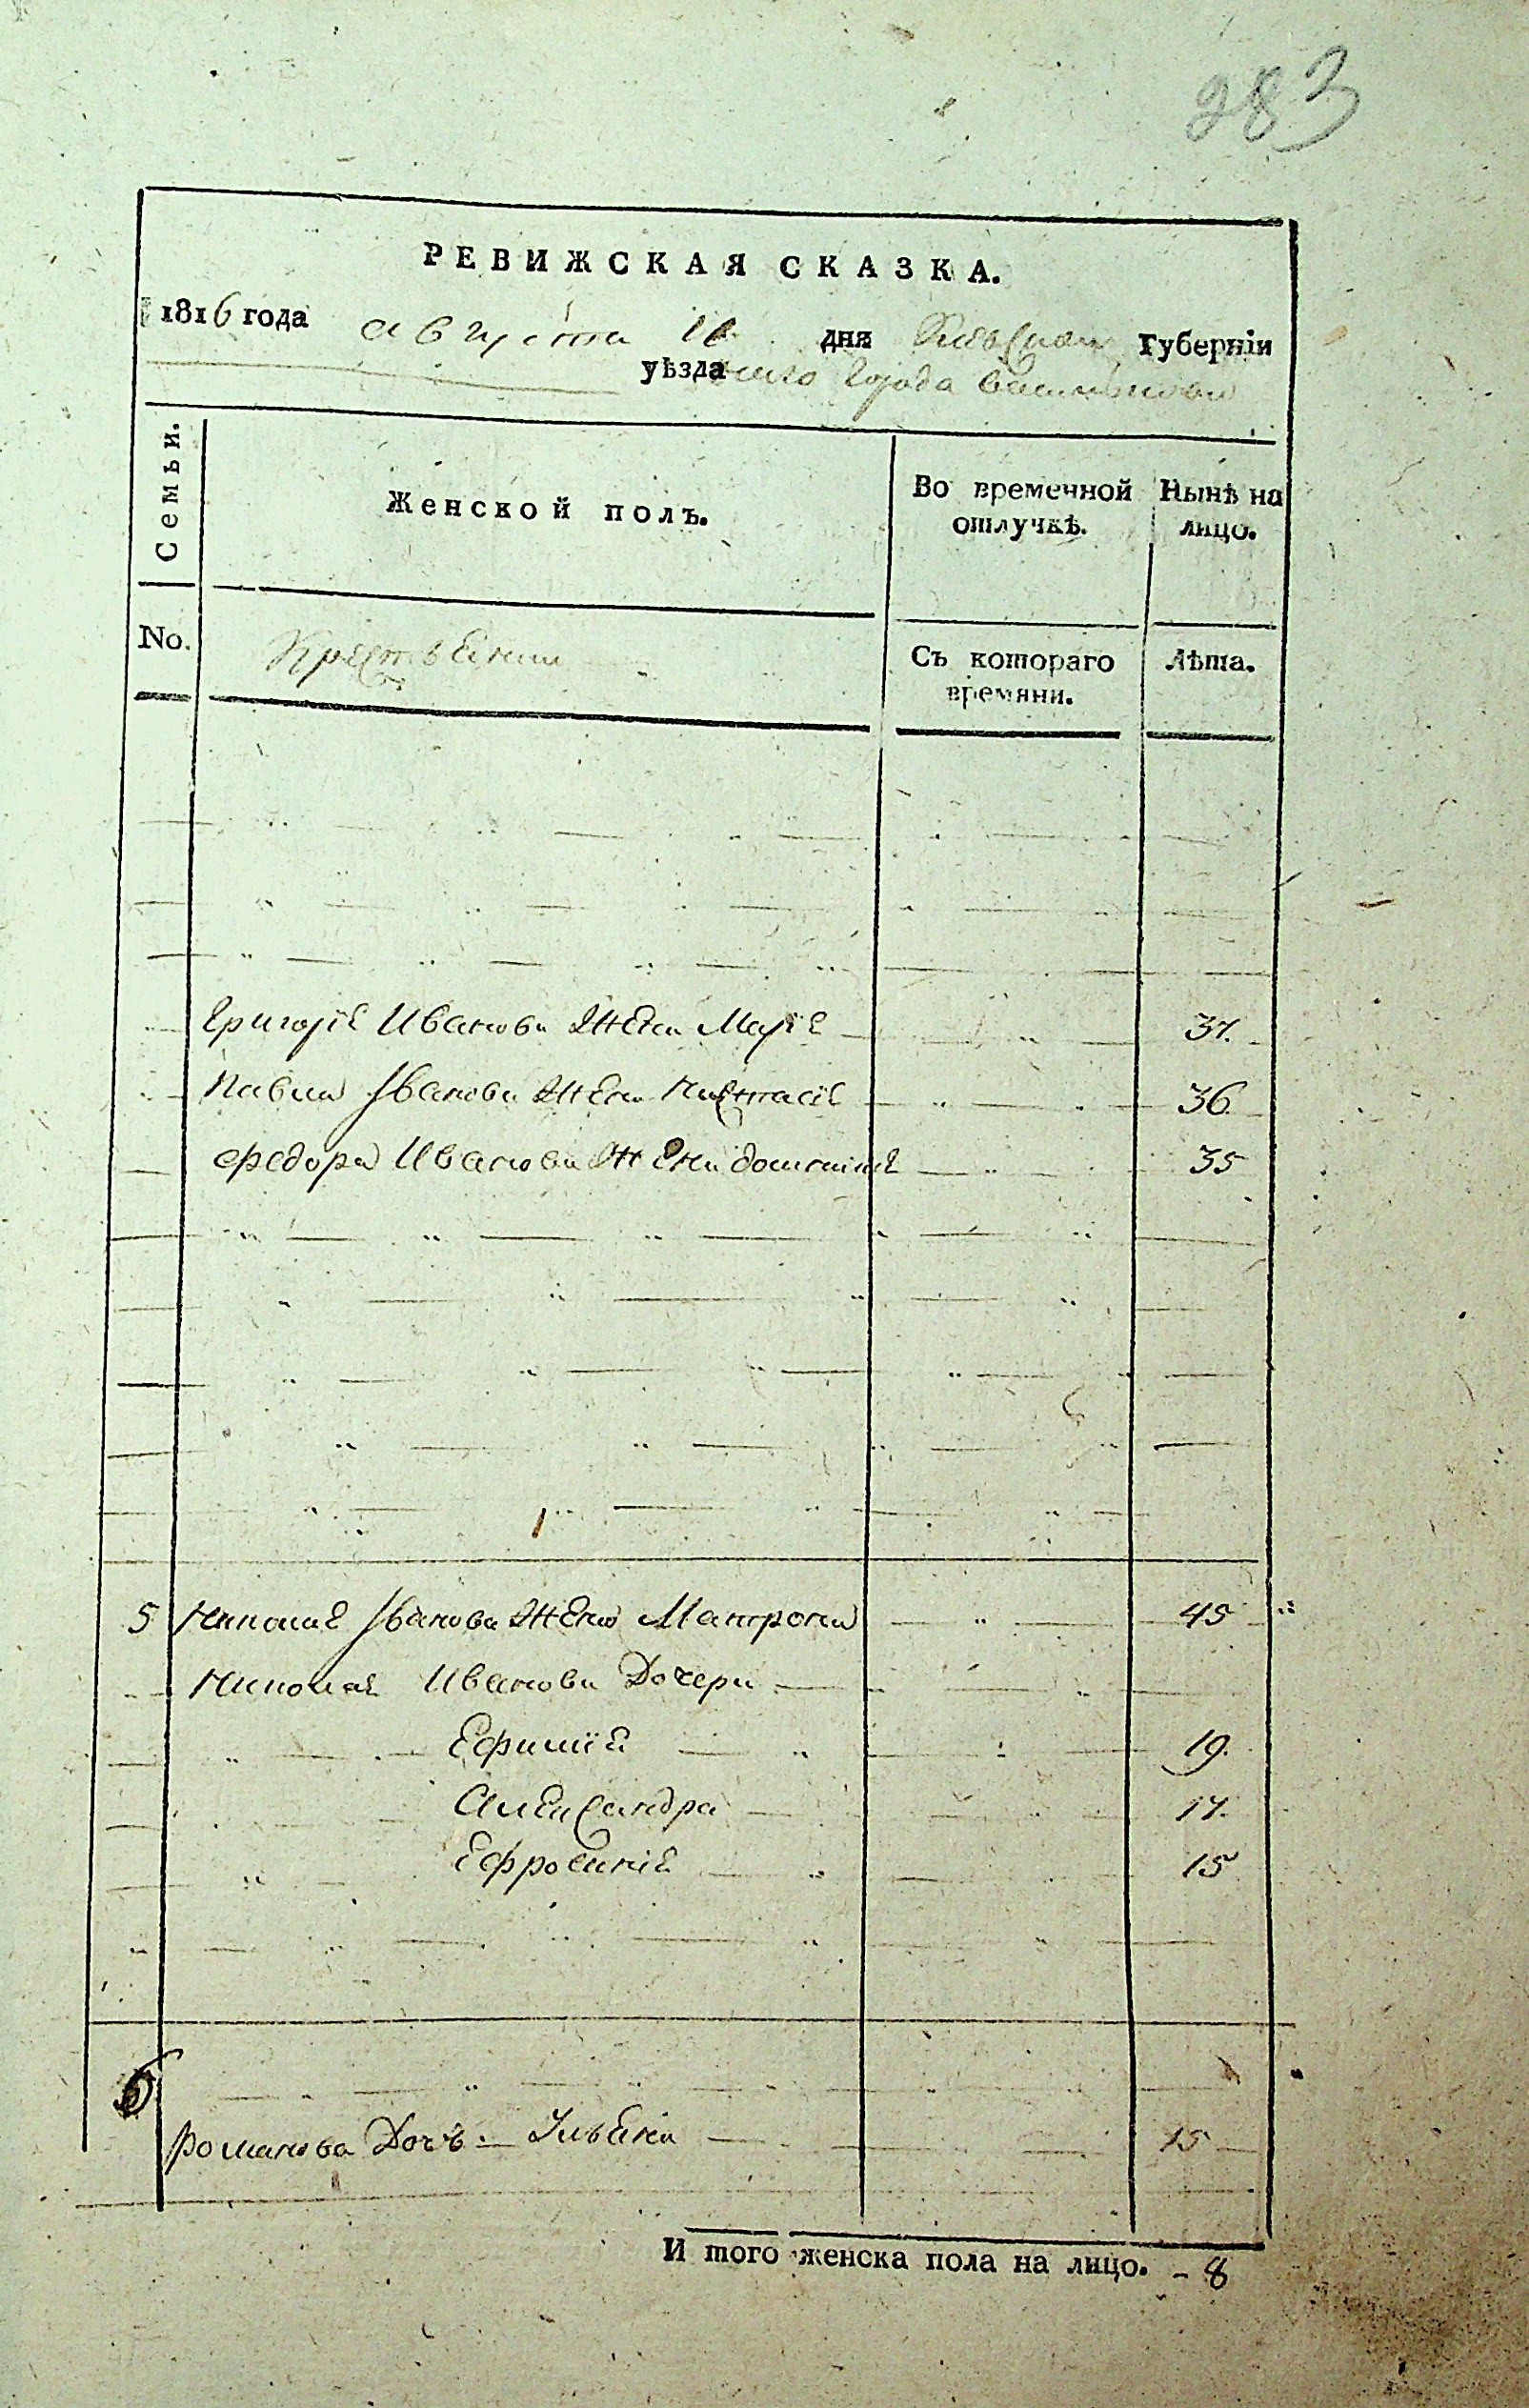 283
РЕВИЖСКАЯ СКАЗКА.
1816 года августа 11 дня Киевской губерніи
уѣзда города
Семьи.
Женской полъ.
Во временной отлучкѣ.
Нынѣ на лицо.
No.
Крестьяне
Съ котораго времяни.
Лѣта.
Григорія Иванова Жена Марія 37.
Павла Иванова Жена Настасія 36
Федора Иванова Жена 35
5 Николая Иванова Жена Матрона 45
Николая Иванова Дочери
Ефимія 19.
Александра 17.
Ефросинія 15
6
Романова Дочь Ульяна 15
И того женска пола на лицо. - 8